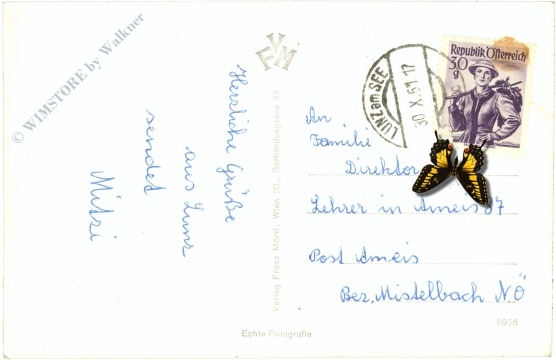 © WIMSTORE by Walkner
Herzliche Grüße
aus Lunz
sendet
Mitzi
VFM
Verlag Franz Mörtl, Wien 20., Gerhardusgasse 27
Echte Fotografie
LUNZ am SEE
30.X.51.17
Republik Österreich
30
g
An
Familie
Direktor
Lehrer in Ameis 87
Post Ameis
Bez. Mistelbach N.Ö
8956